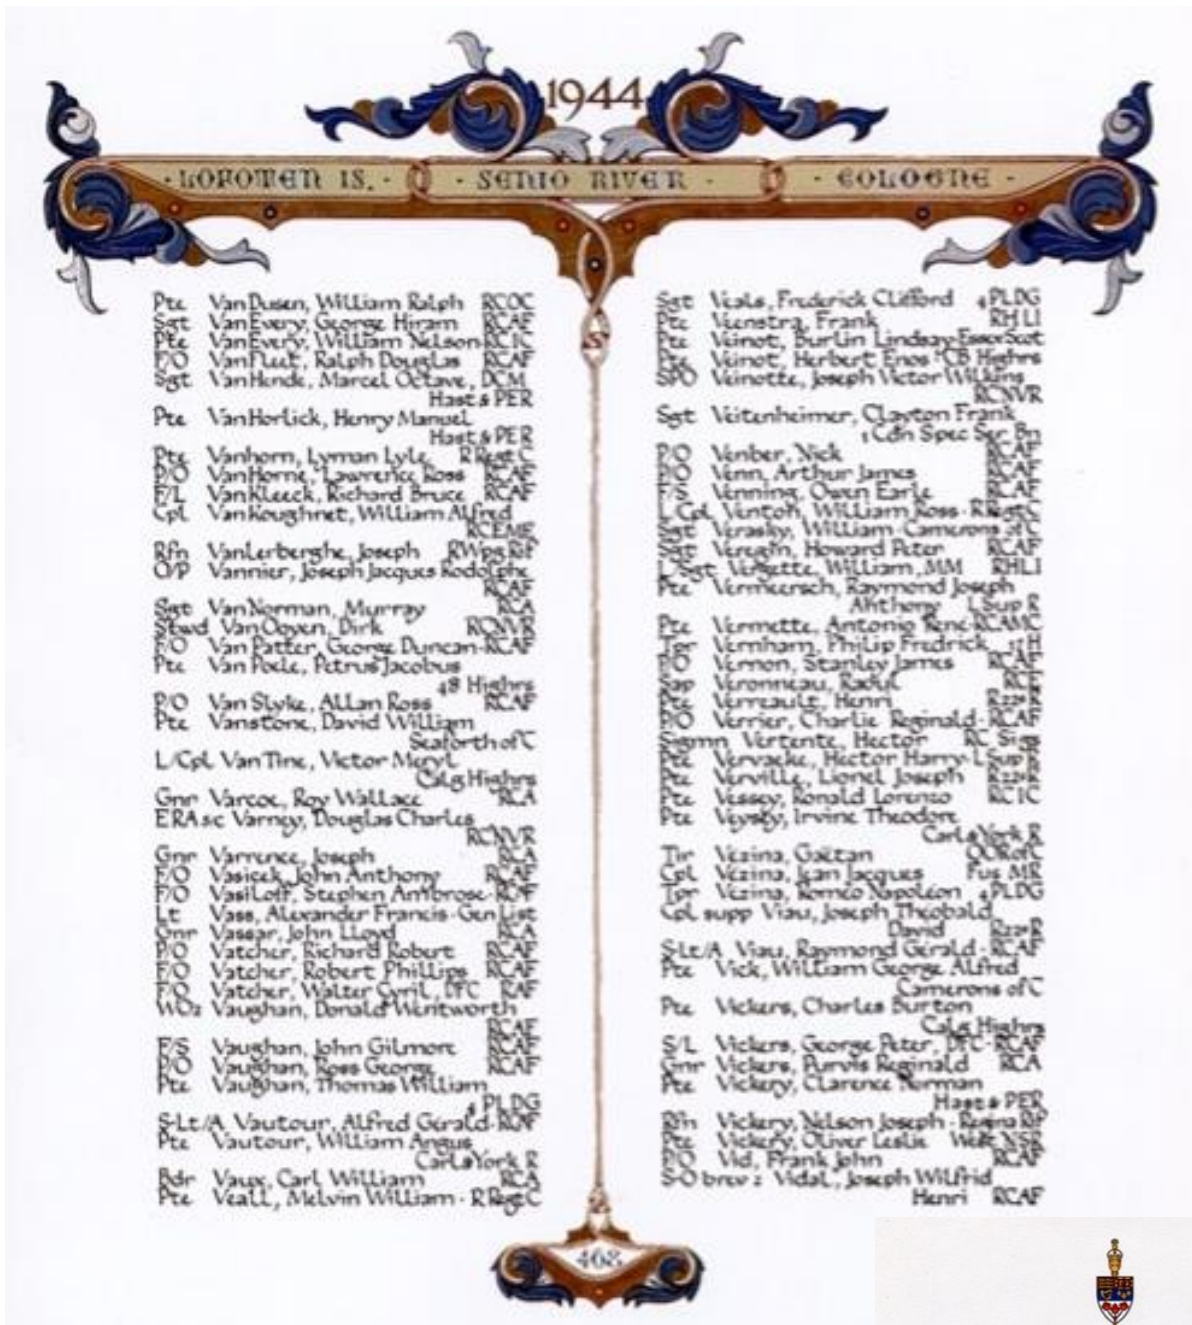 1944
· LOFOTEN IS. ·
· SENIO RIVER ·
· COLOGNE ·
Pte VanDusen, William Ralph RCOC
Sgt VanEvery, George Hiram RCAF
Pte VanEvery, William Nelson·RCIC
F/O VanFleet, Ralph Douglas RCAF
Sgt VanHende, Marcel Octave, DCM
Hast & PER
Pte VanHorlick, Henry Manuel
Hast & PER
Pte Vanhorn, Lyman Lyle RRegtC
P/O VanHorne, Lawrence Ross RCAF
F/L VanKleeck, Richard Bruce RCAF
Cpl VanKoughnet, William Alfred
RCEME
Rfn VanLerberghe, Joseph RWpgRif
O/P Vannier, Joseph Jacques Rodolphe
RCAF
Sgt VanNorman, Murray RCA
Stwd VanOoyen, Dirk RCNVR
F/O VanPatter, George Duncan·RCAF
Pte VanPoele, Petrus Jacobus
48 Highrs
P/O VanSlyke, Allan Ross RCAF
Pte Vanstone, David William
Seaforth of C
L/Cpl VanTine, Victor Meryl
Calg Highrs
Gnr Varcoe, Roy Wallace RCA
ERA 5c Varney, Douglas Charles
RCNVR
Gnr Varrence, Joseph RCA
F/O Vasicek, John Anthony RCAF
F/O Vasiloff, Stephen Ambrose·RCAF
Lt Vass, Alexander Francis·Gen List
Gnr Vassar, John Lloyd RCA
P/O Vatcher, Richard Robert RCAF
F/O Vatcher, Robert Phillips RCAF
F/O Vatcher, Walter Cyril, DFC RAF
WO2 Vaughan, Donald Wentworth
RCAF
F/S Vaughan, John Gilmore RCAF
P/O Vaughan, Ross George RCAF
Pte Vaughan, Thomas William
4 PLDG
S-Lt/A Vautour, Alfred Gérald·RCAF
Pte Vautour, William Angus
Carl & York R
Bdr Vaux, Carl William RCA
Pte Veall, Melvin William · RRegtC
Sgt Veals, Frederick Clifford 4 PLDG
Pte Veenstra, Frank RHLI
Pte Veinot, Burlin Lindsay·Essex Scot
Pte Veinot, Herbert Enos · CB Highrs
SPO Veinotte, Joseph Victor Wilkins
RCNVR
Sgt Veitenheimer, Clayton Frank
1 Cdn Spec Ser Bn
P/O Venber, Nick RCAF
P/O Venn, Arthur James RCAF
F/S Venning, Owen Earle RCAF
L/Cpl Venton, William Ross · RRegtC
Sgt Verasky, William·Camerons of C
Sgt Veregin, Howard Peter RCAF
L/Sgt Vergette, William, MM RHLI
Pte Vermeersch, Raymond Joseph
Anthony LSup R
Pte Vermette, Antonio René·RCAMC
Tpr Vernham, Philip Fredrick
P/O Vernon, Stanley James RCAF
Sap Veronneau, Raoul RCE
Pte Verreault, Henri R22eR
P/O Verrier, Charlie Reginald·RCAF
Sigmn Vertente, Hector RC Sigs
Pte Vervaeke, Hector Harry·LSup R
Pte Verville, Lionel Joseph R22eR
Pte Vessey, Ronald Lorenzo RCIC
Pte Veysey, Irvine Theodore
Carl & York R
Tir Vézina, Gaëtan QORofC
Cpl Vézina, Jean Jacques Fus MR
Tpr Vézina, Roméo Napoléon 4 PLDG
Cpl supp Viau, Joseph Théobald
David R22eR
S-Lt/A Viau, Raymond Gérald · RCAF
Pte Vick, William George Alfred
Camerons of C
Pte Vickers, Charles Burton
Calg Highrs
S/L Vickers, George Peter, DFC·RCAF
Gnr Vickers, Purvis Reginald RCA
Pte Vickery, Clarence Norman
Hast & PER
Rfn Vickery, Nelson Joseph · Regina Rif
Pte Vickery, Oliver Leslie West NSR
P/O Vid, Frank John RCAF
S-O brev 2 Vidal, Joseph Wilfrid
Henri RCAF
468